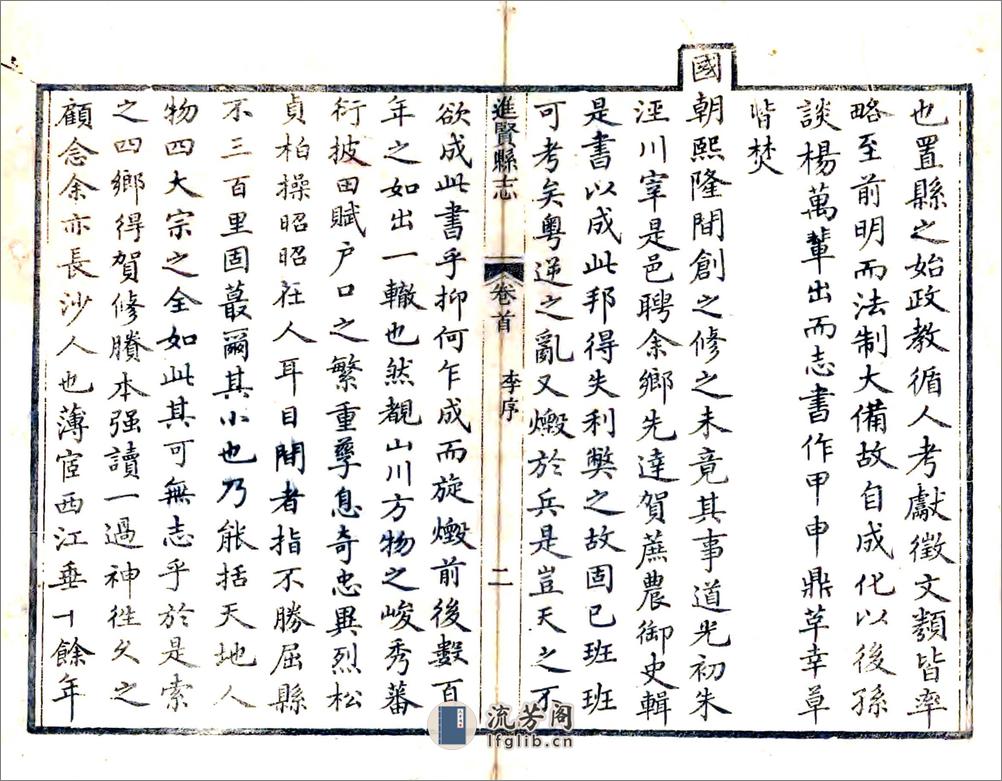 也置縣之始政教循人考獻徵文類皆率
略至前明而法制大備故自成化以後孫
談楊萬輩出而志書作甲申鼎革幸草
皆焚
國朝熙隆間創之修之未竟其事道光初朱
涇川宰是邑聘余鄉先達賀蔗農御史輯
是書以成此邦得失利獘之故固已班班
可考矣粵逆之亂又燬於兵是豈天之不
進賢縣志
卷首
李序
二
欲成此書乎抑何乍成而旋燬前後數百
年之如出一轍也然覩山川方物之峻秀蕃
衍披田賦户口之繁重孳息奇忠異烈松
貞柏操昭昭在人耳目間者指不勝屈縣
不三百里固蕞爾其小也乃能括天地人
物四大宗之全如此其可無志乎於是索
之四鄉得賀修賸本强讀一過神徃久之
顧念余亦長沙人也薄宦西江垂十餘年
流芳阁
lfglib.cn